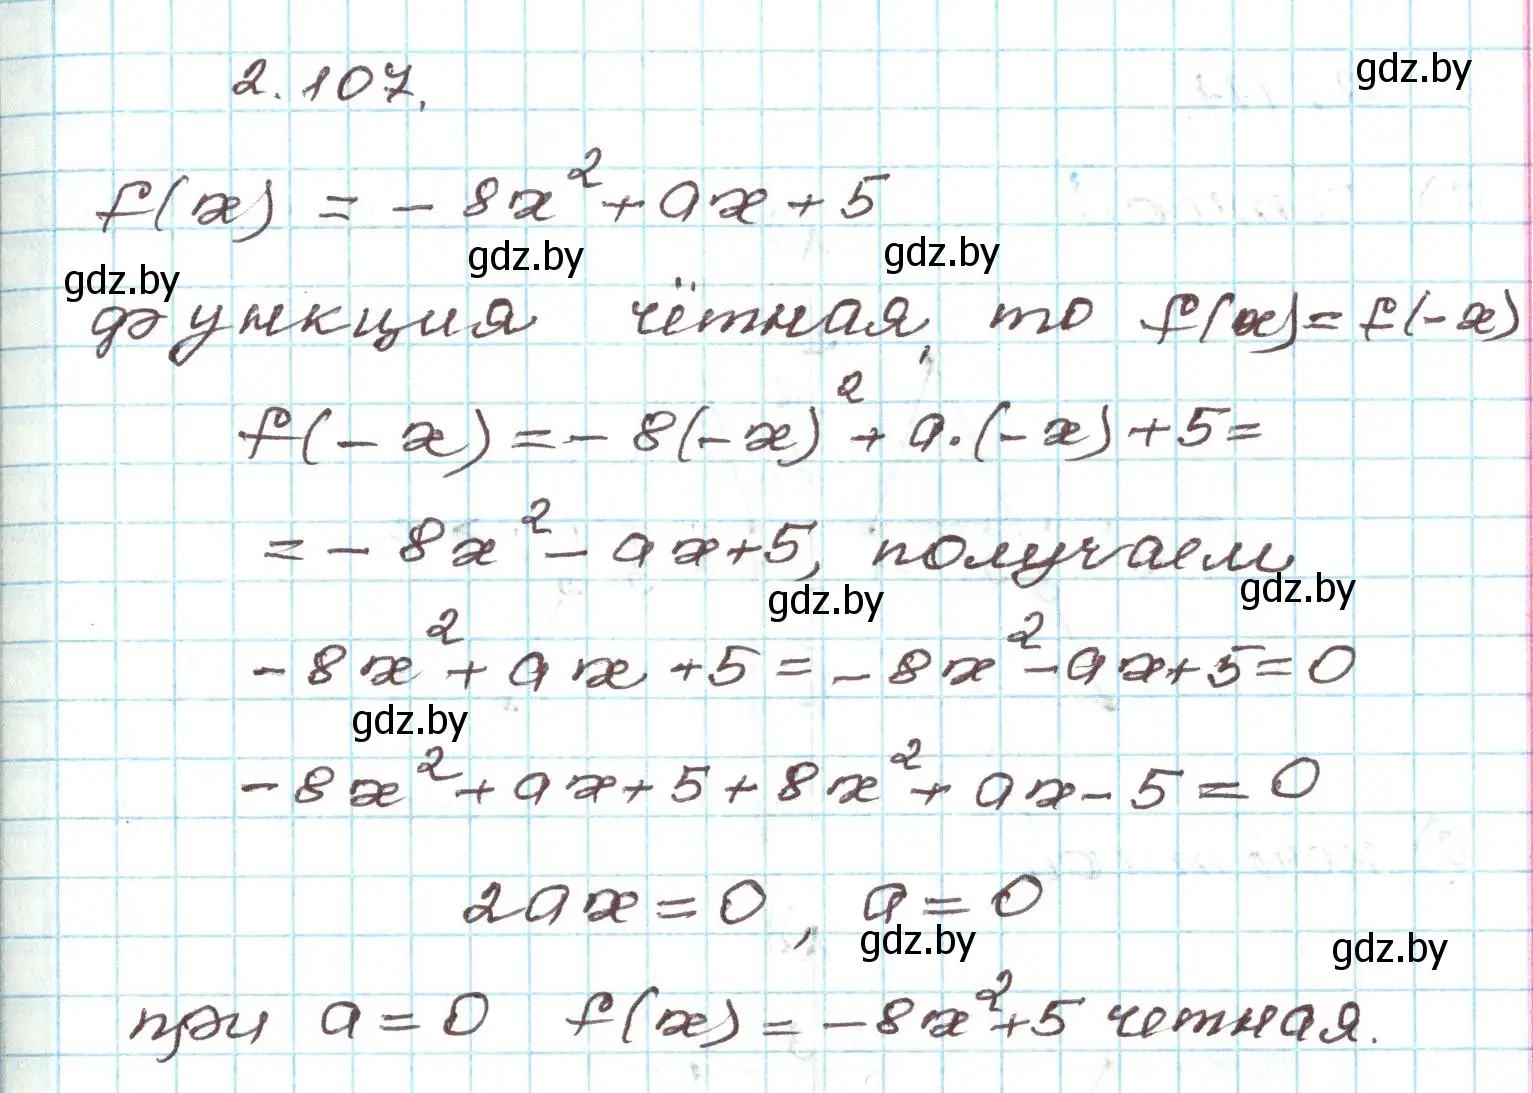 2.107.
gdz.by
f(x) = - 8x² + ax + 5
gdz.by gdz.by gdz.by
функция чётная, то f(x) = f(-x)
f(-x) = - 8(-x)² + a·(-x) + 5 =
= - 8x² - ax + 5, получаем
gdz.by gdz.by
- 8x² + ax + 5 = - 8x² - ax + 5 = 0
gdz.by
- 8x² + ax + 5 + 8x² + ax - 5 = 0
2ax = 0, a = 0
gdz.by gdz.by
при a = 0 f(x) = - 8x² + 5 четная.